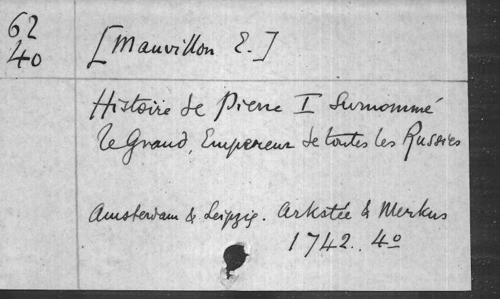 62
40
[Mauvillon E.]
Histoire de Pierre I Surnommé
le Grand, Empereur de toutes les Russies
Amsterdam & Leipzig. Arkstée & Merkus
1742. 4º